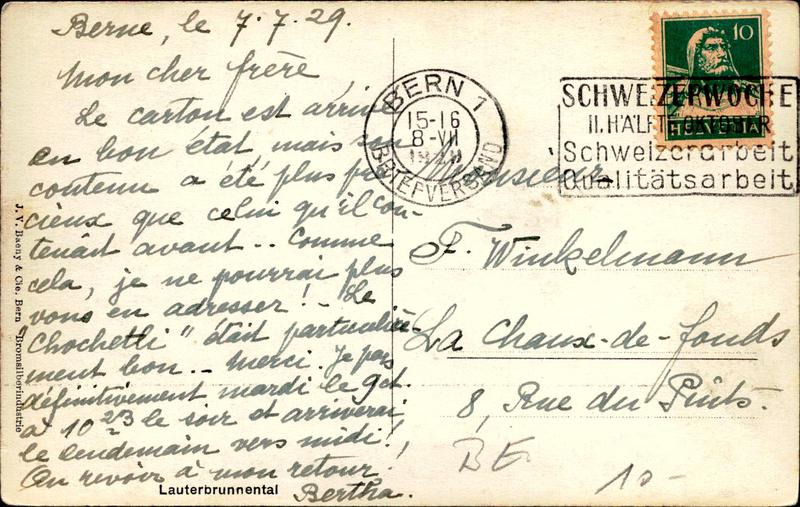 Berne, le 7.7.29.
Mon cher frère,
Le carton est arrivé
en bon état, mais son
contenu a été plus pré-
cieux que celui qu'il con-
tenait avant.. Comme
cela, je ne pourrai plus
vous en adresser! - Le
"Chochetli" était particuliè-
ment bon. - Merci. Je pars
définitivement mardi le 9 ct.
à 10 23 le soir et arriverai
le lendemain vers midi!
Au revoir à mon retour!
Bertha.
Lauterbrunnental
J. V. Baeny & Cie. Bern "Bromsilberindustrie
BERN 1
15-16
8-VII
BRIEFVERSAND
10
HELVETIA
SCHWEIZERWOCHE
II. HÄLFTE OKTOBER
Schweizerarbeit
Qualitätsarbeit
Monsieur
F. Winkelmann
La Chaux-de-fonds
8, Rue du Puits.
BE
10-